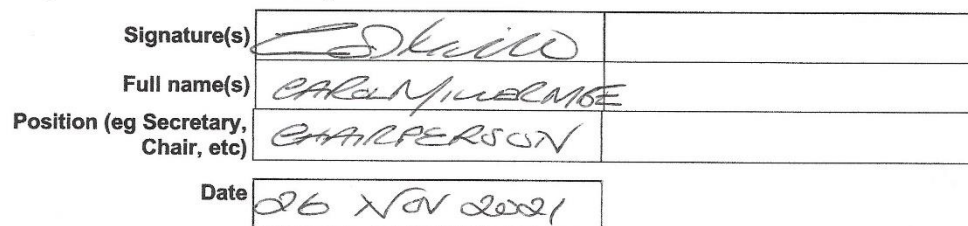 Signature(s)
Full name(s) CAROL MILLER MBE
Position (eg Secretary,
Chair, etc) CHAIRPERSON
Date 26 NOV 2021